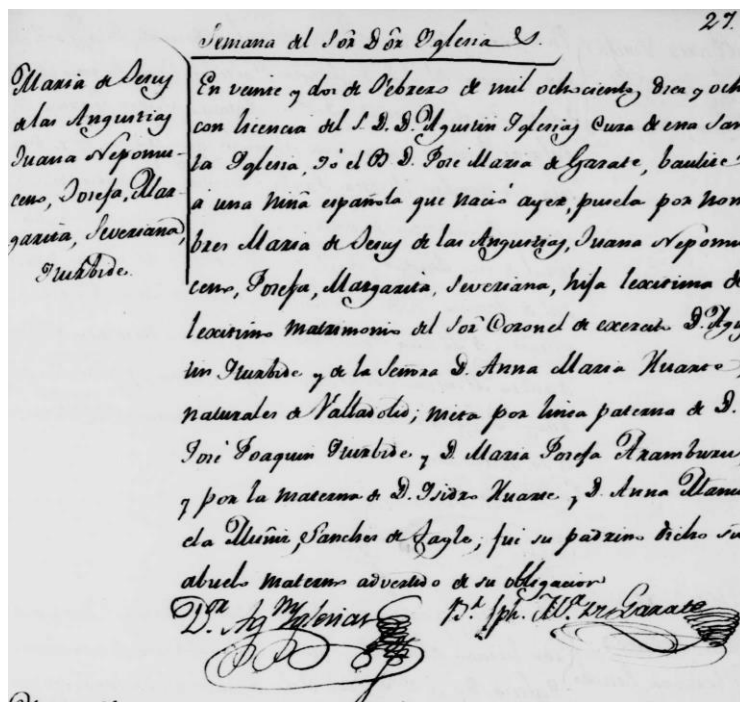 27.
Semana del Sor Dor Yglesias.
Maria de Jesus
de las Angustias
Juana Nepomu-
ceno, Josefa, Mar-
garita, Severiana,
Yturbide.
En veinte y dos de Febrero de mil ochocientos diez y och
con licencia del S. D. D. Agustin Yglesias Cura de esta San
ta Yglesia, Yó el B D. Jose Maria de Garate, bautice
a una niña española que nació ayer, pusela por nom
bres Maria de Jesus de las Angustias, Juana Nepomu
ceno, Josefa, Margarita, Severiana, hija lexitima de
lexitimo matrimonio del Sor Coronel de exercito D. Agus
tin Yturbide y de la Señora D. Anna Maria Huarte,
naturales de Valladolid; nieta por linea paterna de D.
José Joaquin Yturbide y D. Maria Josefa Aramburu,
y por la materna de D. Isidro Huarte y D. Anna Manu
ela Muñiz, Sanches de Tagle; fué su padrino dicho su
abuelo materno advertido de su obligacion
Dor Agn Yglesias
Br. Jph. Ma. de Garate